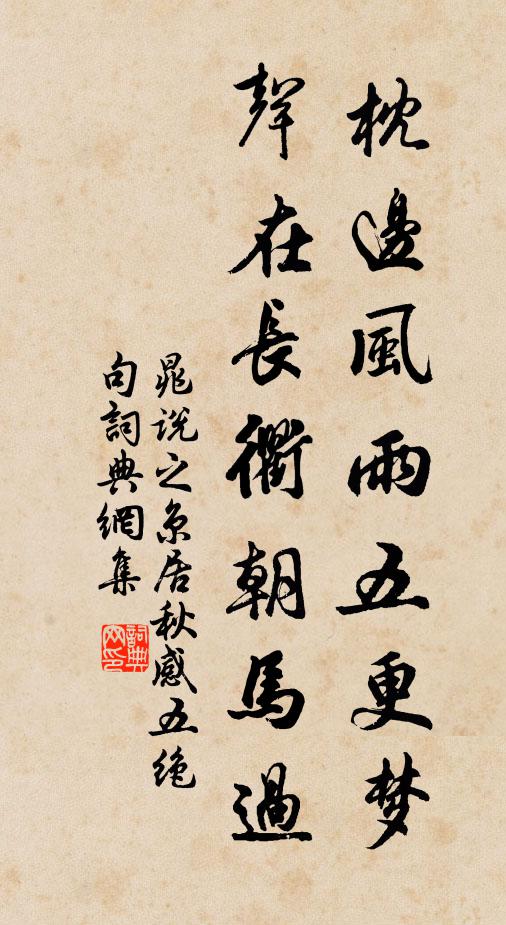 枕邊風雨五更梦
聲在長衢朝馬過
晁說之京居秋感五絕
句詞典網集
詞典
网印